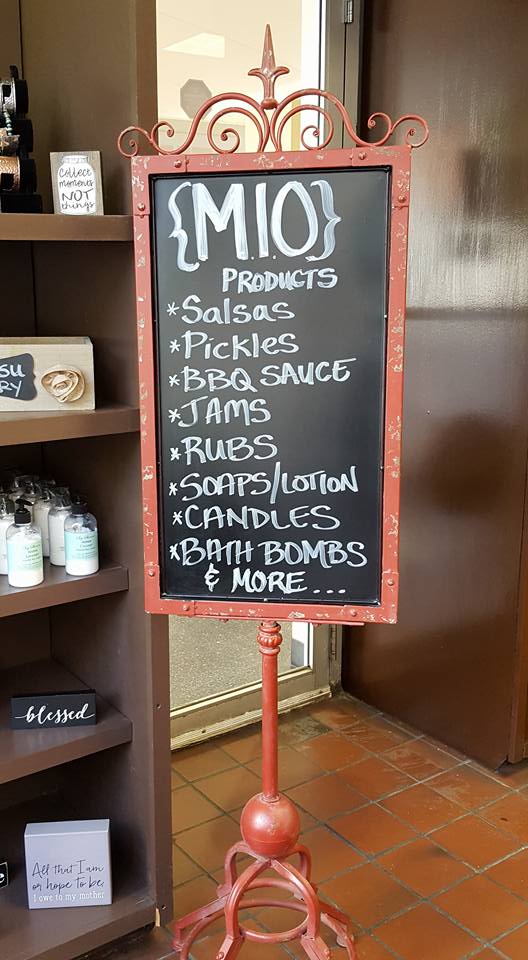 {M.I.O}
PRODUCTS
*Salsas
*Pickles
*BBQ SAUCE
*JAMS
*RUBS
*SOAPS/LOTION
*CANDLES
*BATH BOMBS
& MORE...
Collect
moments
NOT
things
SU
RY
blessed
All that I am
or hope to be,
I owe to my mother